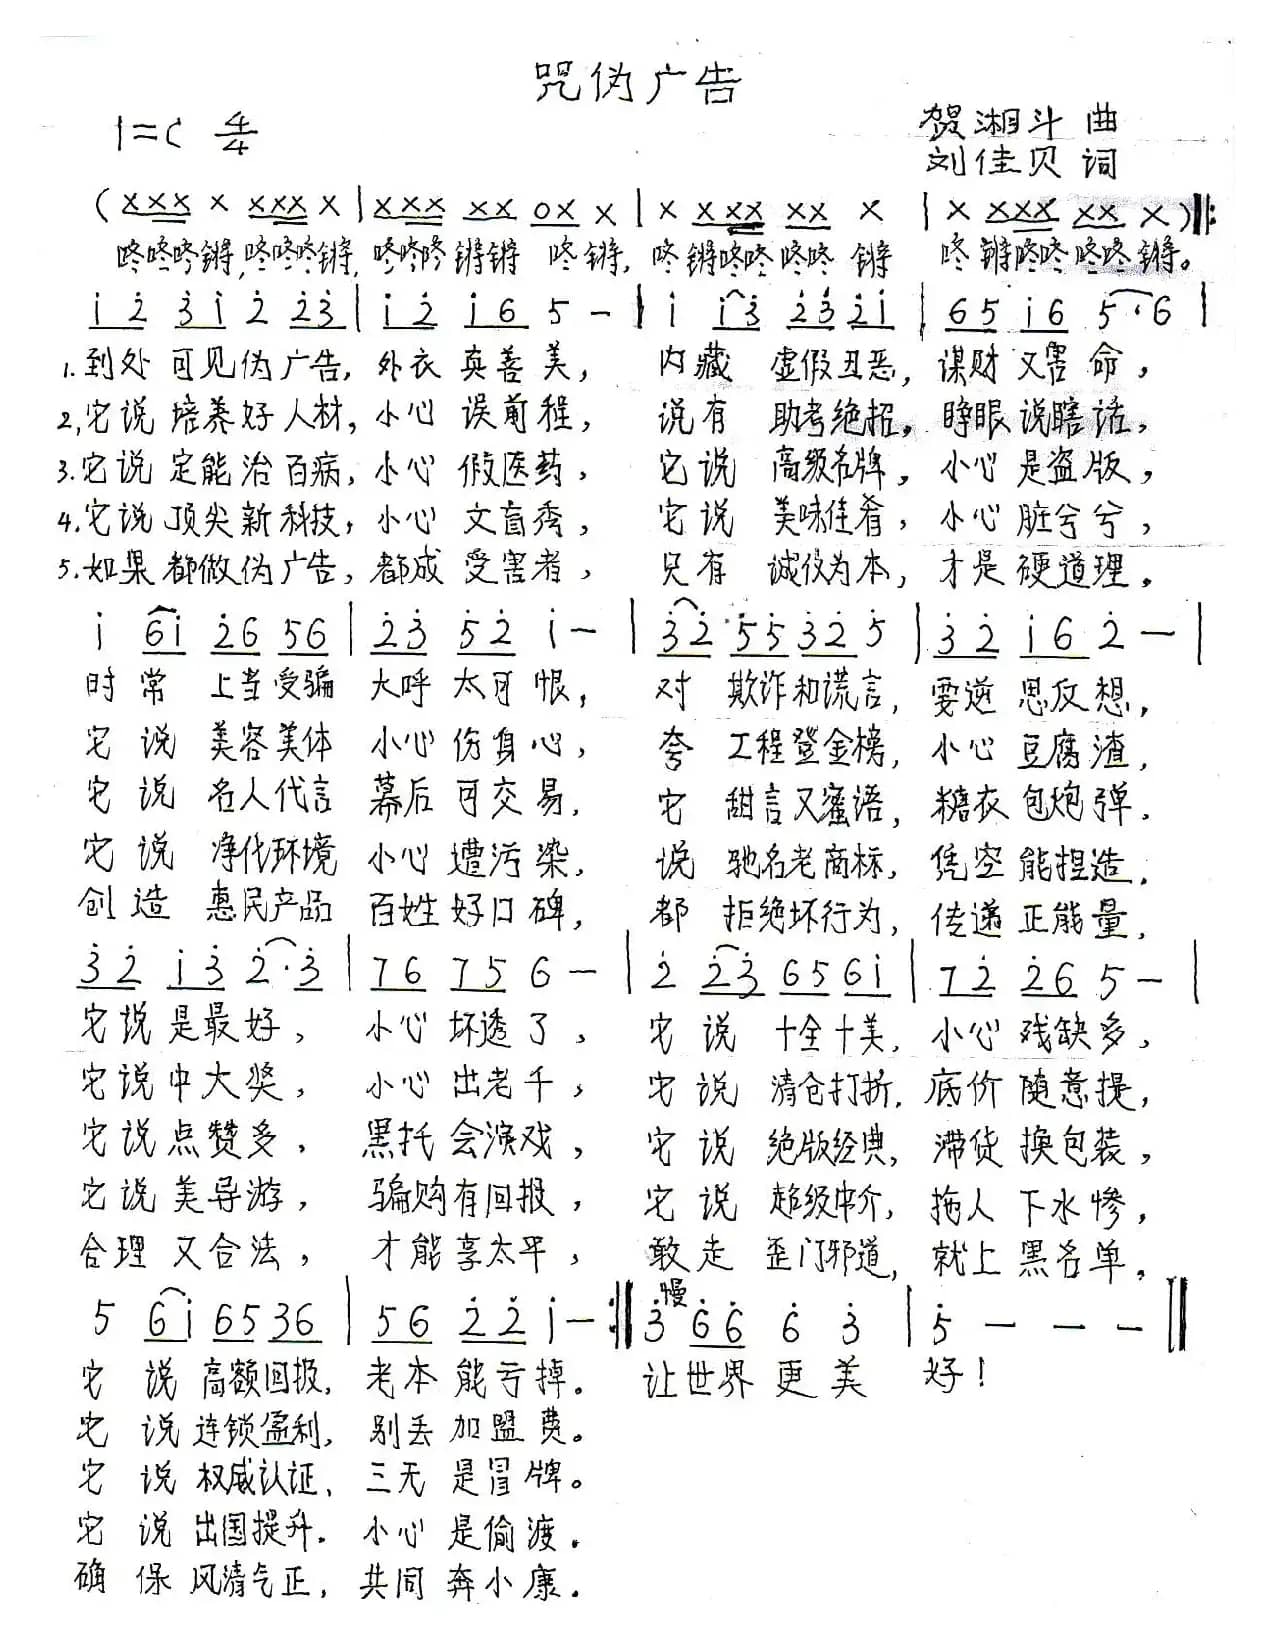 咒伪广告
1=C 4/4
贺湘斗 曲
刘佳贝 词
(XXX X XXX X | XXX XX 0X X | X XXX XX X | X XXX XX X) ‖:
咚咚咚锵,咚咚咚锵, 咚咚咚 锵锵 咚锵, 咚锵咚咚咚咚 锵 咚锵咚咚咚咚锵。
i 2 3 i 2 23 | i 2 i 6 5 – | i i3 23 2i | 65 i6 5·6 |
1.到处可见伪广告, 外衣真善美, 内藏 虚假丑恶, 谋财又害命,
2,它说培养好人材, 小心误前程, 说有 助考绝招, 睁眼说瞎话,
3.它说定能治百病, 小心假医药, 它说 高级名牌, 小心是盗版,
4.它说顶尖新科技, 小心文盲秀, 它说 美味佳肴, 小心脏兮兮,
5.如果都做伪广告, 都成受害者, 只有 诚信为本, 才是硬道理.
i 6i 26 56 | 23 52 i – | 32 55 32 5 | 32 i6 2 – |
时常 上当受骗 大呼太可恨, 对 欺诈和谎言, 要逆思反想,
它说 美容美体 小心伤身心, 夸 工程登金榜, 小心豆腐渣,
它说 名人代言 幕后可交易, 它 甜言又蜜语, 糖衣包炮弹.
它说 净化环境 小心遭污染, 说 驰名老商标, 凭空能捏造.
创造 惠民产品 百姓好口碑, 都 拒绝坏行为, 传递正能量,
32 i3 2·3 | 76 75 6 – | 2 23 65 6i | 72 26 5 – |
它说是最好, 小心坏透了, 它说 十全十美, 小心残缺多,
它说中大奖, 小心出老千, 它说 清仓打折, 底价随意提,
它说点赞多, 黑托会演戏, 它说 绝版经典, 滞货换包装,
它说美导游, 骗购有回报, 它说 超级中介, 拖人下水惨,
合理又合法, 才能享太平, 敢走 歪门邪道, 就上黑名单,
慢
5 6i 65 36 | 56 22 i – :‖ 3 66 6 3 | 5 – – – ‖
它说 高额回报, 老本能亏掉。 让世界更美 好!
它说 连锁盈利, 别丢加盟费。
它说 权威认证, 三无是冒牌。
它说 出国提升. 小心是偷渡.
确保 风清气正, 共同奔小康.